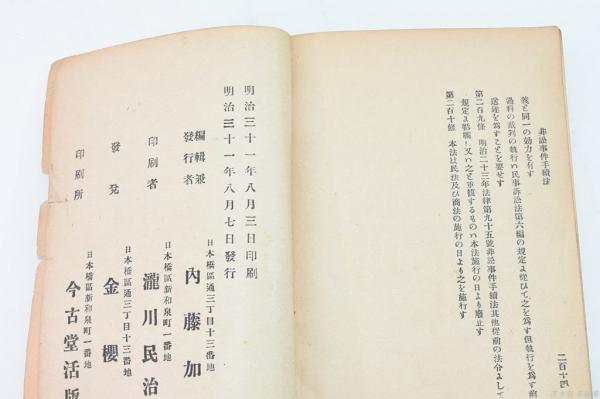 非訟事件手續法
義と同一の効力を有す
過料の裁判の執行ハ民事訴訟法第六編の規定よ從ひて之を爲す但執行を爲す前
送達を爲すことを要せす
第二百九條 明治二十三年法律第九十五號非訟事件手續法其他從前の法令よして
規定よ牴觸し又ハ之と重複するものハ本法施行の日より廢止す
第二百十條 本法ハ民法及ひ商法の施行の日より之を施行す
二百十四
明治三十一年八月三日印刷
明治三十一年八月七日發行
編輯兼
發行者
日本橋區通三丁目十三番地
內藤加
印刷者
日本橋區新和泉町一番地
瀧川民治
發兌
日本橋區通三丁目十三番地
金櫻
印刷所
日本橋區新和泉町一番地
今古堂活版